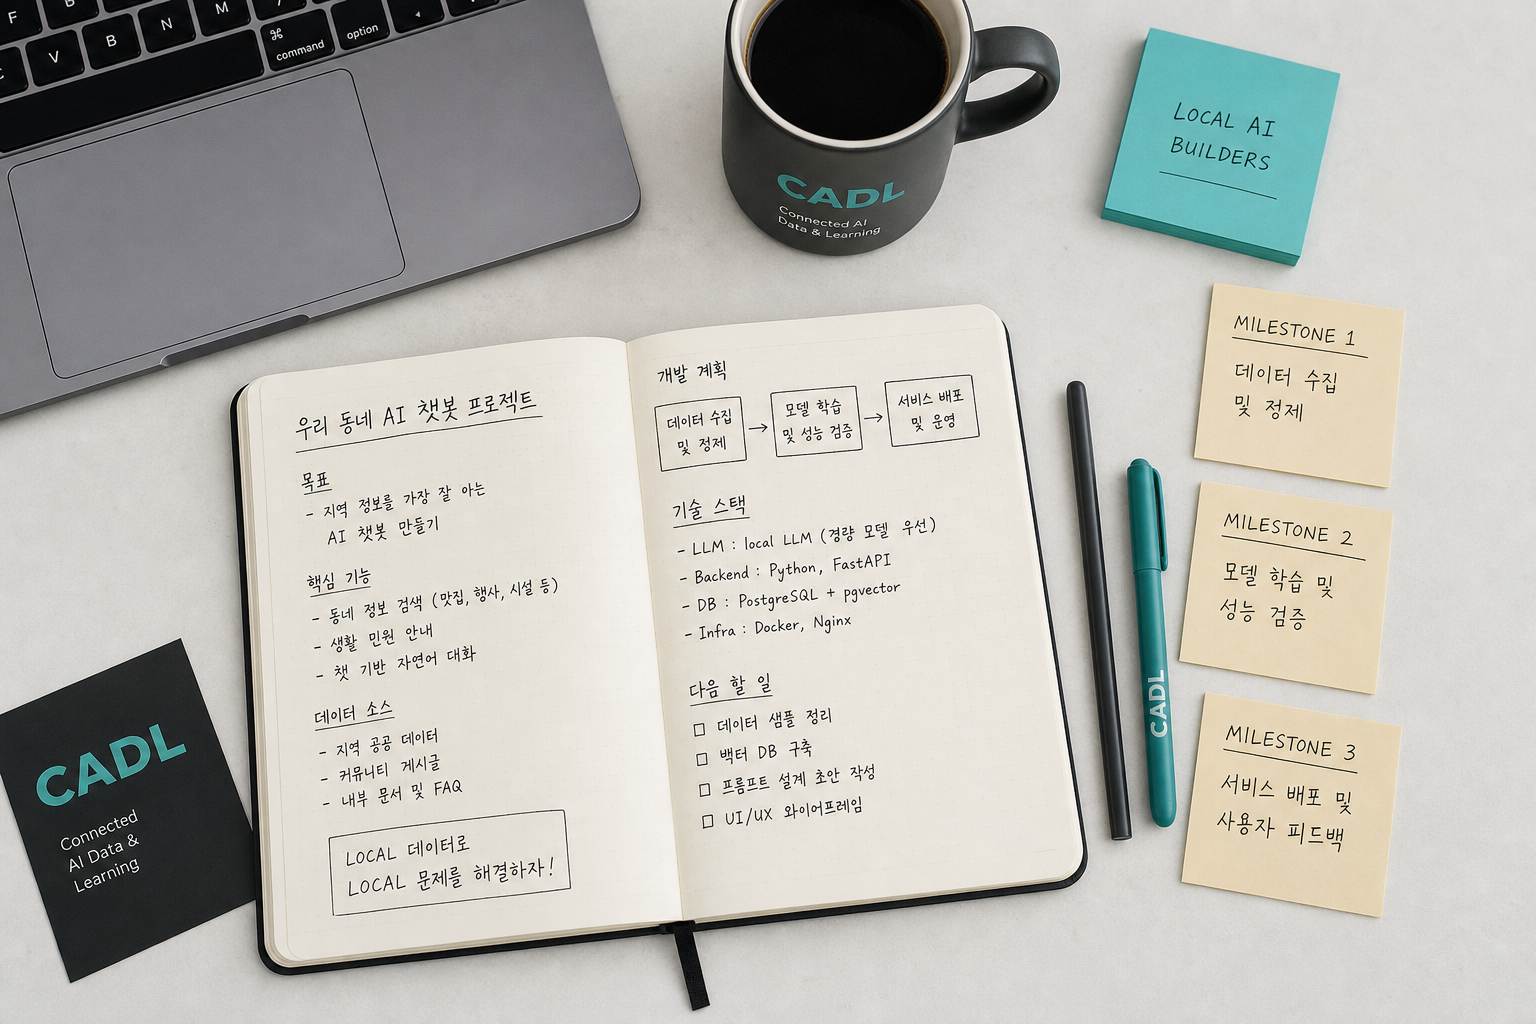 F
B
N
M
C
V
B
N
M
⌘
command
option
CADL
Connected AI
Data & Learning
LOCAL AI
BUILDERS
우리 동네 AI 챗봇 프로젝트
목표
- 지역 정보를 가장 잘 아는
AI 챗봇 만들기
핵심 기능
- 동네 정보 검색 (맛집, 행사, 시설 등)
- 생활 민원 안내
- 챗 기반 자연어 대화
데이터 소스
- 지역 공공 데이터
- 커뮤니티 게시글
- 내부 문서 및 FAQ
LOCAL 데이터로
LOCAL 문제를 해결하자!
개발 계획
데이터 수집
및 정제
→
모델 학습
및 성능 검증
→
서비스 배포
및 운영
기술 스택
- LLM : local LLM (경량 모델 우선)
- Backend : Python, FastAPI
- DB : PostgreSQL + pgvector
- Infra : Docker, Nginx
다음 할 일
□ 데이터 샘플 정리
□ 백터 DB 구축
□ 프롬프트 설계 초안 작성
□ UI/UX 와이어프레임
CADL
MILESTONE 1
데이터 수집
및 정제
MILESTONE 2
모델 학습 및
성능 검증
MILESTONE 3
서비스 배포 및
사용자 피드백
CADL
Connected
AI Data &
Learning